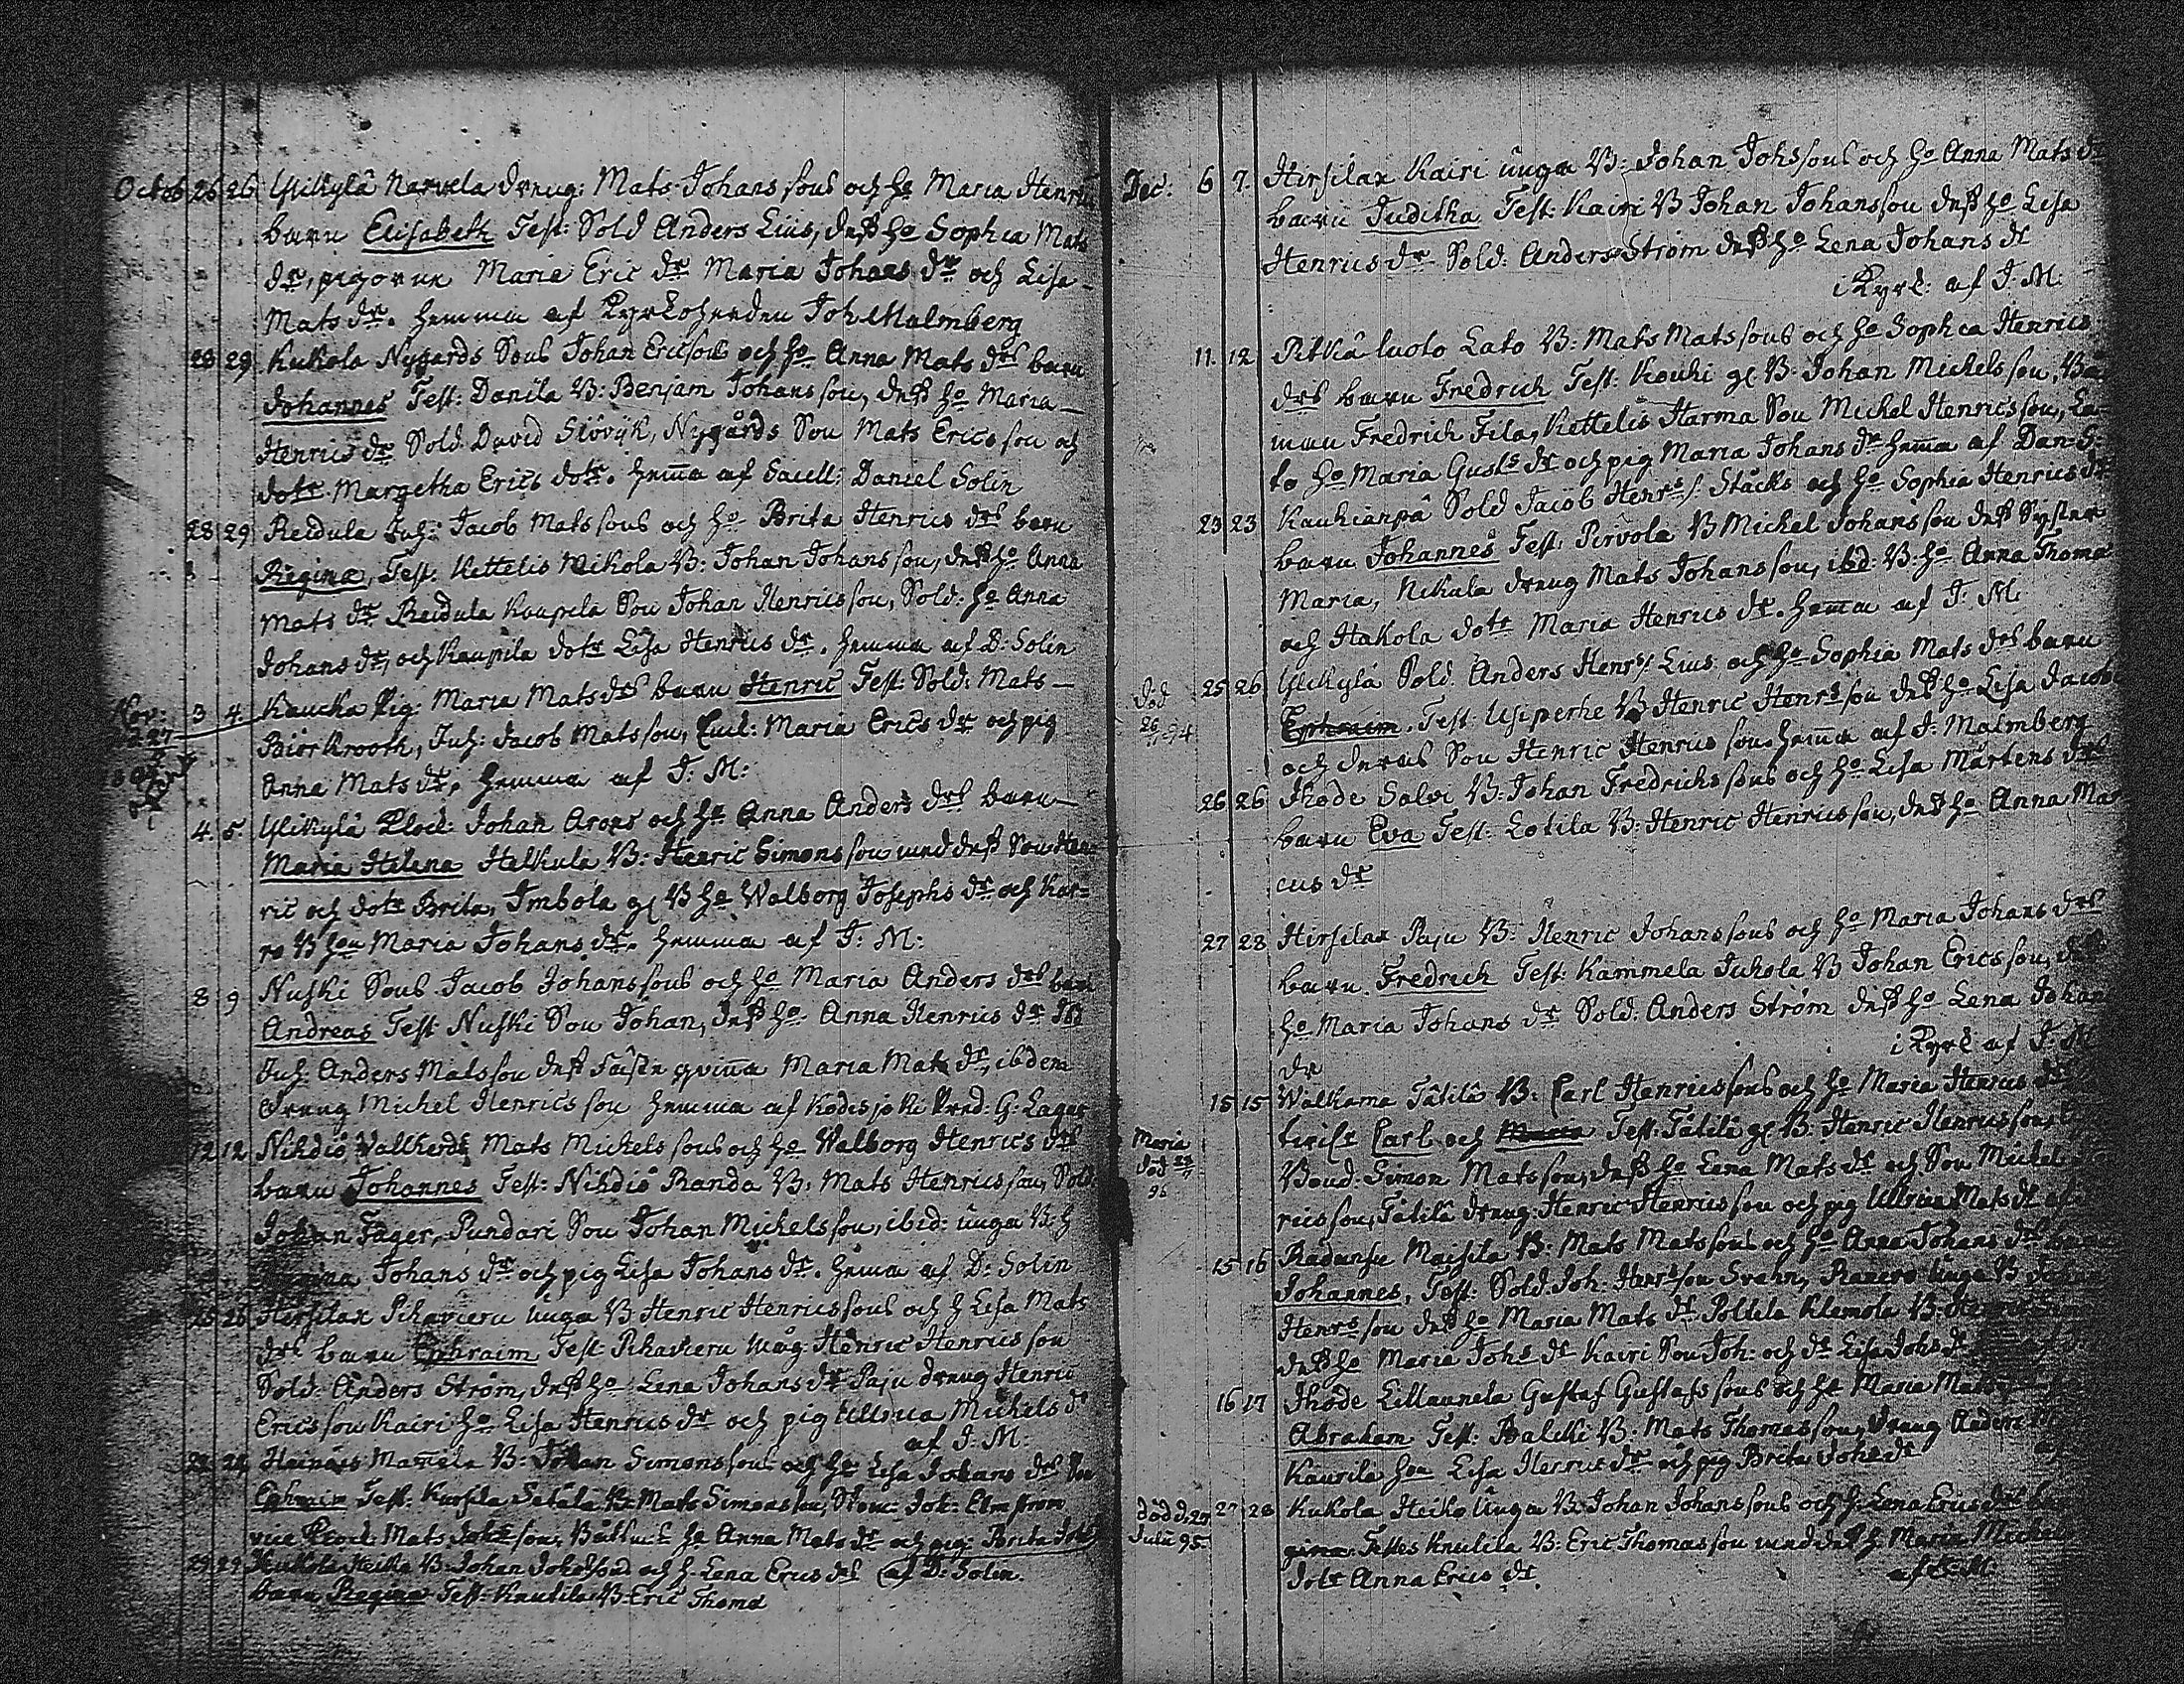 Octob 26 26 Ylikylä Narvela dreng: Mats Johanssons och ho Maria Henrics
barn Elisabeth Test: Sold Anders Lius, dess ho Sophia Mats
dr, pigorne Maria Eric dr Maria Johans dr och Lisa
Mats dr. hemma af Kyrkoherden Joh Malmberg
28 29 Kukola Nygårds Sons Johan Ericsons och ho Anna Mats drs barn
Johannes Test: Danila B: Benjam Johansson, dess ho Maria
Henrics dr Sold David Slövyk, Nygårds Son Mats Ericsson och
dotr Margetha Erics dotr. hemma af Sacell: Daniel Solin
28 29 Reidula Inh: Jacob Matssons och ho Brita Henrics drs barn
Regina, Test: Kettelis Mikola B: Johan Johansson, dess ho Anna
Mats dr Reidula Kaupila Son Johan Henricsson, Sold: ho Anna
Johans dr, och Kaupila dotr Lisa Henrics dr. hemma af D: Solin
Nov: 3 4 Kaucka Pig: Maria Mats drs barn Henric Test: Sold: Mats
Biörkrooth, Inh: Jacob Matsson, Maria Erics dr och pig
Anna Mats dr, hemma af J: M:
4 5 Ylikylä Klock: Johan Arons och ho Anna Anders drs barn
Maria Helena Helkula B: Henric Simonsson med dess Son Hen
ric och dotr Brita, Imbola gl B ho Walborg Josephs dr och Kar=
ro B hon Maria Johans dr. hemma af J: M:
8 9 Nuski Sons Jacob Johanssons och ho Maria Anders drs barn
Andreas Test: Nuski Son Johan, dess ho Anna Henrics dr
Inh Anders Matsson dess fäste qvinna Maria Mats dr, ibdem
dreng Michel Henricsson hemma af Kodisjoki Pred: G: Lager
12 12 Nihdiö Vallherds Mats Michelssons och ho Walborg Henrics drs
barn Johannes Test: Nihdiö Randa B: Mats Henricsson, Sold
Johan Fager, Pundari Son Johan Michelsson, ibid: unga B: h
Regina Johans dr och pig Lisa Johans dr. hemma af D: Solin
25 26 Hirsilax Pihavieru unga B Henric Henricssons och h Lisa Mats
drs barn Ephraim Test: Pihavieru Måg: Henric Henricsson
Sold: Anders Ström, dess ho Lena Johans dr Paju dreng Henric
Ericsson Kairi ho Lisa Henrics dr och pig Ullrica Michels dr
af J: M:
Heinäis Mannela B: Johan Simonssons och ho Lisa Johans drs
Ephraim Test: Mats Simonsson,
Mats ho Anna Mats dr och pig: Brita
29 29 Kukola Heiko B: Johan Johanssons och h: Lena Erics drs af D: Solin
barn Regina Test: Knutila B: Eric Thomæ
Dec: 6 7 Hirsilax Kairi unga B: Johan Johssons och ho Anna Mats dr
barn Juditha Test: Kairi B Johan Johansson dess ho Lisa
Henrics dr Sold: Anders Ström dess ho Lena Johans dr
i Kyrk: af J: M:
11. 12 Pitkäluoto Lato B: Mats Matssons och ho Sophia Henrics
drs barn Fredrich Test: Kouhi gl B: Johan Michelsson,
man Fredrich Fila, Kettelis Harma Son Michel Henricsson, La
to ho Maria Gusts dr och pig Maria Johans dr hemma af Dan: S:
23 23 Kauhianpä Sold Jacob Henrs: Stäcks och ho Sophia Henrics drs
barn Johannes Test: Pirvola B Michel Johansson dess Syster
Maria, Nikula dreng Mats Johansson, ibd: B: ho Anna Thomæ
och Hakola dotr Maria Henrics dr. hemma af J: M:
död 26/11 94 25 26 Ylikylä Sold: Anders Henrs: Lius och ho Sophia Mats drs barn
Ephraim. Test: Ylsiperhe B Henric Henrsson dess ho Lisa Jacobs
och deras Son Henric Henricsson hemma af J: Malmberg
26 26 Ihode Salvi B: Johan Fredrichssons och ho Lisa Mårtens drs
barn Eva Test: Lotila B: Henric Henricsson, dess ho Anna Mar
cus dr
27 28 Hirsilax Paju B: Henric Johanssons och ho Maria Johans drs
barn Fredrich Test: Kammela Juhola B Johan Ericsson, dess
ho Maria Johans dr Sold: Anders Ström dess ho Lena Johans
dr i Kyrk af J: M
15 15 Walkama Tätilä B: Carl Henricssons och ho Maria Henrics drs
Maria död 96 Carl och Maria Test: Tätilä gl B: Henric Henricsson,
Bond: Simon Matsson, dess ho Lena Mats dr och Son Michel
ricsson, Tätilä dreng Henric Henricsson och pig Ullrica Mats dr
15 16 Radansu Maxsila B: Mats Matssons och ho Anna Johans drs barn
Johannes, Test: Sold: Joh: Henrsson Svahn, unga B Johan
Henrsson dess ho Maria Mats dr Pollila Klemola B: Henric
dess ho Maria Johs dr Kairi Son Joh: och dr Lisa Johs dr
16 17 Ihode Lillaunela Gustaf Gustafssons och ho Maria Mats
Abraham Test: B: Mats Thomasson, dreng Anders
Kaurila hon Lisa Henrics dr och pig Brita Johs dr
död d. 27 Julii 95. 27 28 Kukola Heiko Unga B: Johan Johanssons och h: Lena Erics drs
gina. Testes Knutila B: Eric Thomasson med dess h Maria Michels
dotr Anna Erics dr. af J: M